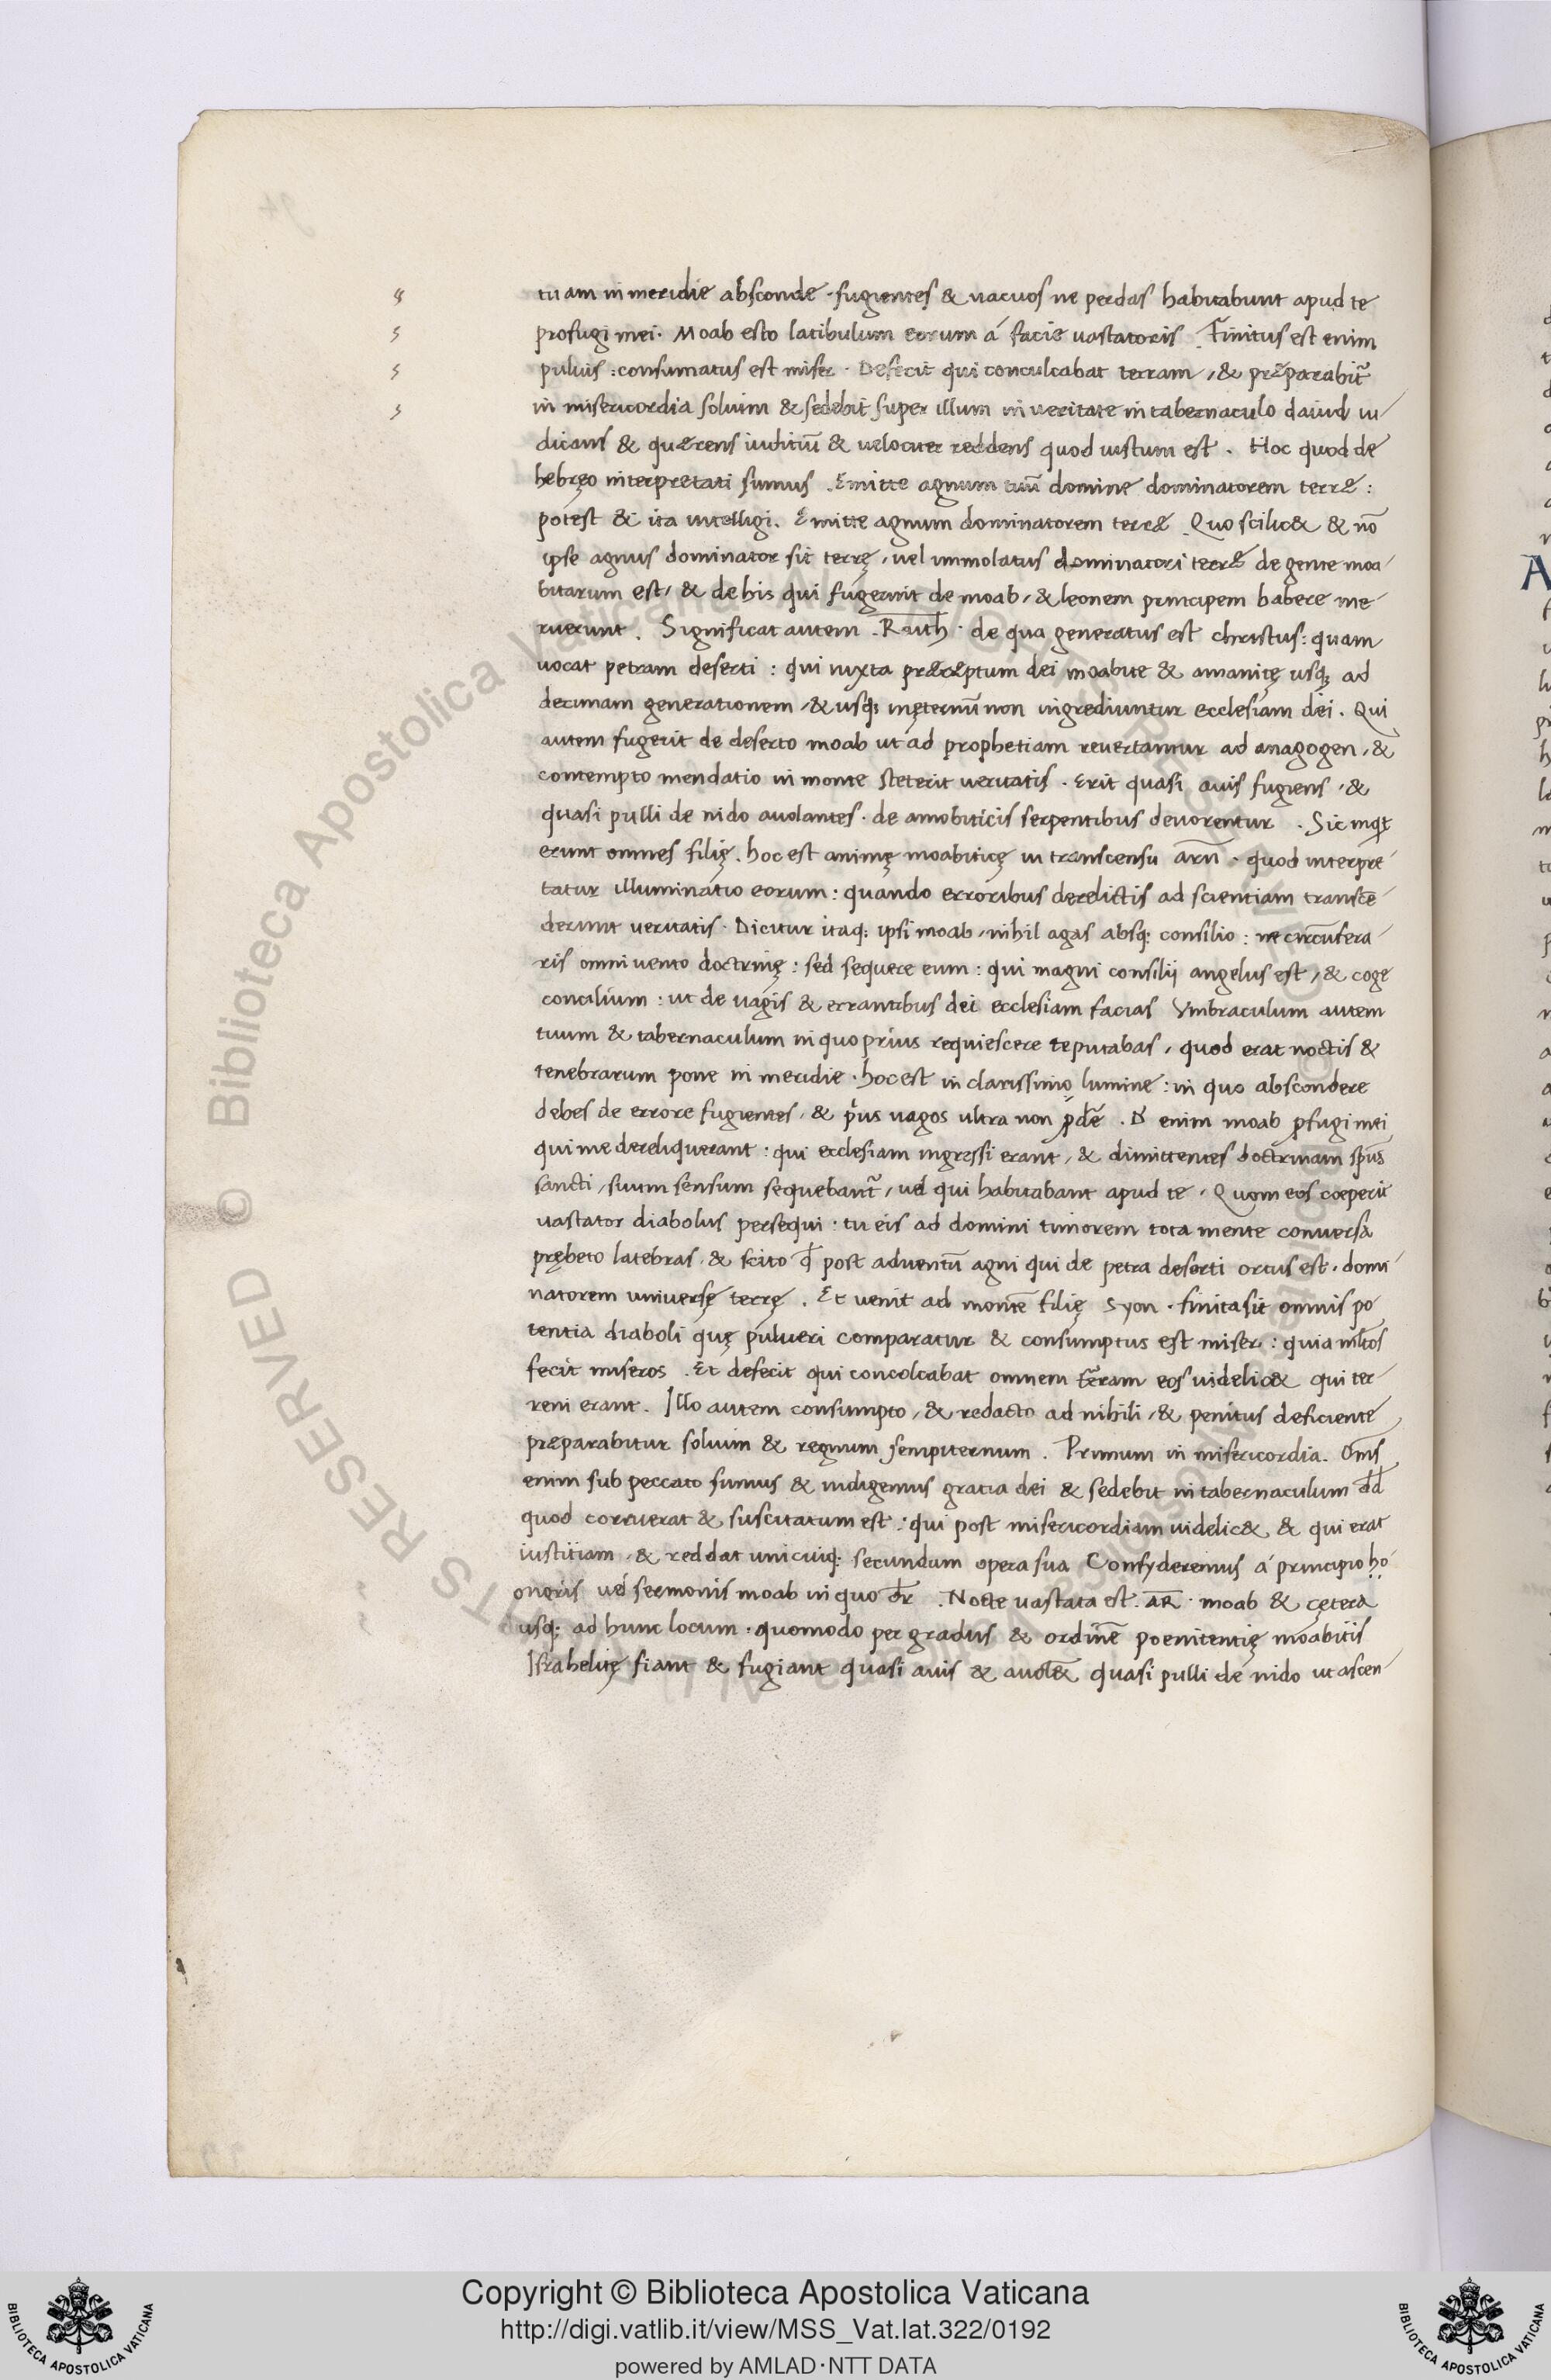 tuam in meridie absconde · fugientes & uacuos ne perdas habitabunt apud te
profugi mei · Moab esto latibulum eorum á facie uastatoris . Finitus est enim
puluis : consumatus est miser · Defecit qui conculcabat terram , & præparabit᷑
in misericordia solium & sedebit super illum in ueritate in tabernaculo dauid iu-
dicans & quærens iuditiū & uelociter reddens quod iustum est . Hoc quod de
hebręo interpretati sumus . Emitte agnum tuū domine dominatorem terræ :
potest & ita intelligi . Emitte agnum dominatorem terræ . Quo scilic& & nō
ipse agnus dominator sit terrę , uel immolatus dominatori terræ de gente moa-
bitarum est , & de his qui fugerint de moab , & leonem principem habere me
ruerunt . Significat autem . Ruth · de qua generatus est christus : quam
uocat petram deserti : qui iuxta præceptum dei moabite & amanitę usq; ad
decimam generationem , & usq; inęternū non ingrediuntur ecclesiam dei . Qui
autem fugerit de deserto moab ut ad prophetiam reuertamur ad anagogen , &
contempto mendatio in monte steterit ueritatis . Erit quasi auis fugiens , &
quasi pulli de nido auolantes · de amobiticis serpentibus deuorentur . Sic inqt
erunt omnes filię . hoc est animę moabiticę in transcensu arn̄ · quod interpre-
tatur illuminatio eorum : quando erroribus derelictis ad scientiam transcē-
derint ueritatis · Dicitur itaq; ipsi moab , nihil agas absq; consilio : ne circūfera-
ris omni uento doctrinę : sed sequere eum : qui magni consilij angelus est , & coge
concilium : ut de uagis & errantibus dei ecclesiam facias Vmbraculum autem
tuum & tabernaculum in quo prius requiescere te putabas , quod erat noctis &
tenebrarum pone in meridie · hoc est in clarissimo lumine : in quo abscondere
debes de errore fugientes , & p̓us uagos ultra non ꝑdē . enim moab ꝓfugi mei
qui me dereliquerant : qui ecclesiam ingressi erant , & dimittentes doctrinam sp̄us
sancti , suum sensum sequebant᷑ , uel qui habitabant apud te . Quom eos coeperit
uastator diabolus persequi · tu eis ad domini timorem tota mente conuersa
prębeto latebras · & scito ꝙ post aduentū agni qui de petra deserti ortus est · domi-
natorem uniuersę terrę . Et uenit ad montē filię syon · finita sit omnis po
tentia diaboli quę pulueri comparatur & consumptus est miser : quia ml̄tos
fecit miseros . Et defecit qui concolcabat omnem t̄ram eos uidelic& qui ter-
reni erant . Illo autem consumpto , & redacto ad nihili , & penitus deficiente ,
præparabitur solium & regnum sempiternum . Primum in misericordia . Om̄s
enim sub peccato sumus & indigemus gratia dei & sedebit in tabernaculum dd̄
quod corruerat & suscitatum est : qui post misericordiam uidelic& & qui erat
iustitiam , & reddat unicuiq; secundum opera sua Consyderemus á principio ho
onoris uel sermonis moab in quo dr̄ . Nocte uastata est . AR · moab & cętera
usq; ad hunc locum · quomodo per gradus & ordinē poenitentię moabitis
Israhelitę fiant & fugiant quasi auis & auol& quasi pulli de nido ut ascen-
© Biblioteca Apostolica Vaticana
Copyright © Biblioteca Apostolica Vaticana
http://digi.vatlib.it/view/MSS_Vat.lat.322/0192
powered by AMLAD·NTT DATA
BIBLIOTECA APOSTOLICA VATICANA
BIBLIOTECA APOSTOLICA VATICANA